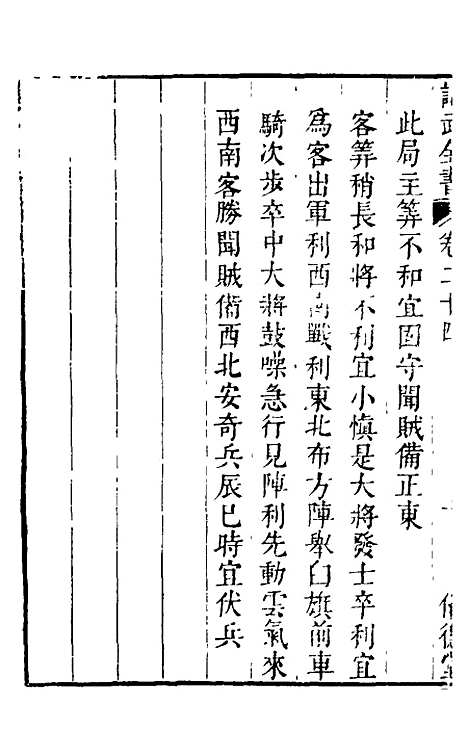 武全書 卷二十四
此局主筭不和宜固守聞賊備正東
客筭稍長和將不利宜小慎是大將發士卒利宜
爲客出軍利西南戰利東北布方陣舉白旗前車
騎次步卒中大將鼓噪急行見陣利先動雲氣來
西南客勝聞賊備西北安奇兵辰巳時宜伏兵